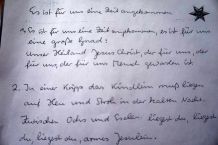 Es ist für uns eine Zeit angekommen
1. Es ist für uns eine Zeit angekommen, es ist für uns
eine große Gnad:
Unser Heiland Jesus Christ, der für uns, der
für uns, der für uns Mensch geworden ist.
2. In einer Krippe das Kindlein muß liegen
auf Heu und Stroh in der kalten Nacht.
Zwischen Ochs und Eselein liegest du, liegest
du, liegest du, armes Jesulein.